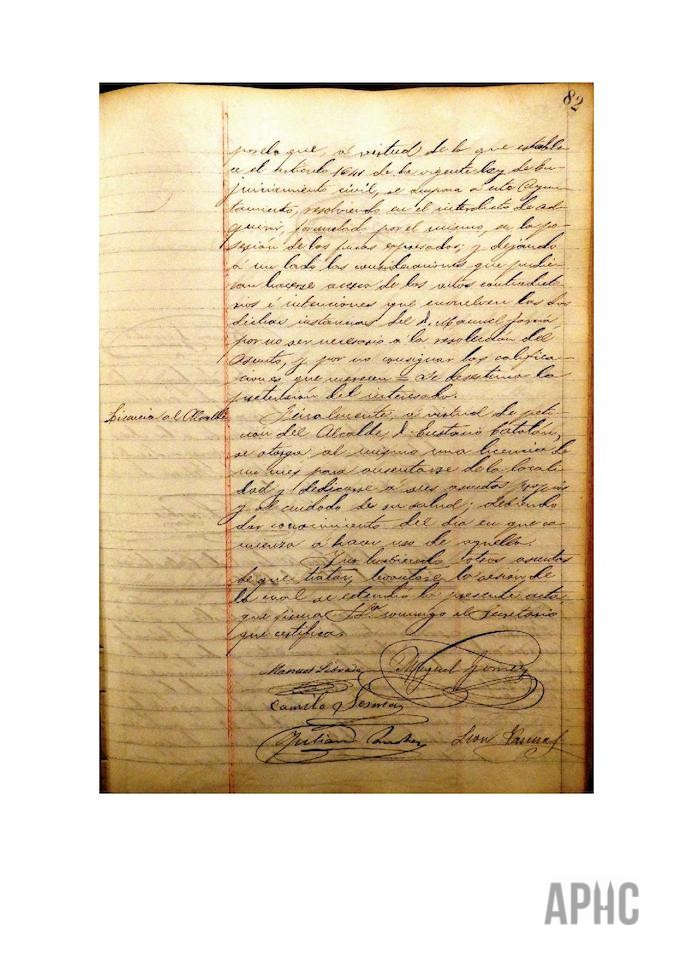 82
por lo que, á virtud de lo que estable-
ce el artículo 1641 de la vigente ley de En-
juiciamiento civil, se ampara á este Ayun-
tamiento, resolviendo en el interdicto de ad-
quirir, formulado por el mismo, en la po-
sesión de las fincas expresadas; y dejando
á un lado las consideraciones que pudie-
ran hacerse acerca de los contradicto-
rios é intenciones que envuelven las dos
dichas instancias del D. Manuel García
por no ser necesario á la resolución del
asunto, y por no consignar las califica-
ciones que merecen = Se desestima la
pretensión del interesado.
Licencia al Alcalde
Finalmente: á virtud de peti-
ción del Alcalde, D. Eustasio Catalán,
se otorga al mismo una licencia de
un mes para ausentarse de la locali-
dad y dedicarse á sus asuntos propios
y al cuidado de su salud; debiendo
dar conocimiento del día en que co-
mienza á hacer uso de aquella.
Y no habiendo otros asuntos
de que tratar, levantose la sesión, de
la cual se extendió la presente acta,
que firma S.S.ª conmigo el Secretario
que certifico.
Manuel Miguel Gomez
Camilo
Julian Sanchez Leon
APHC